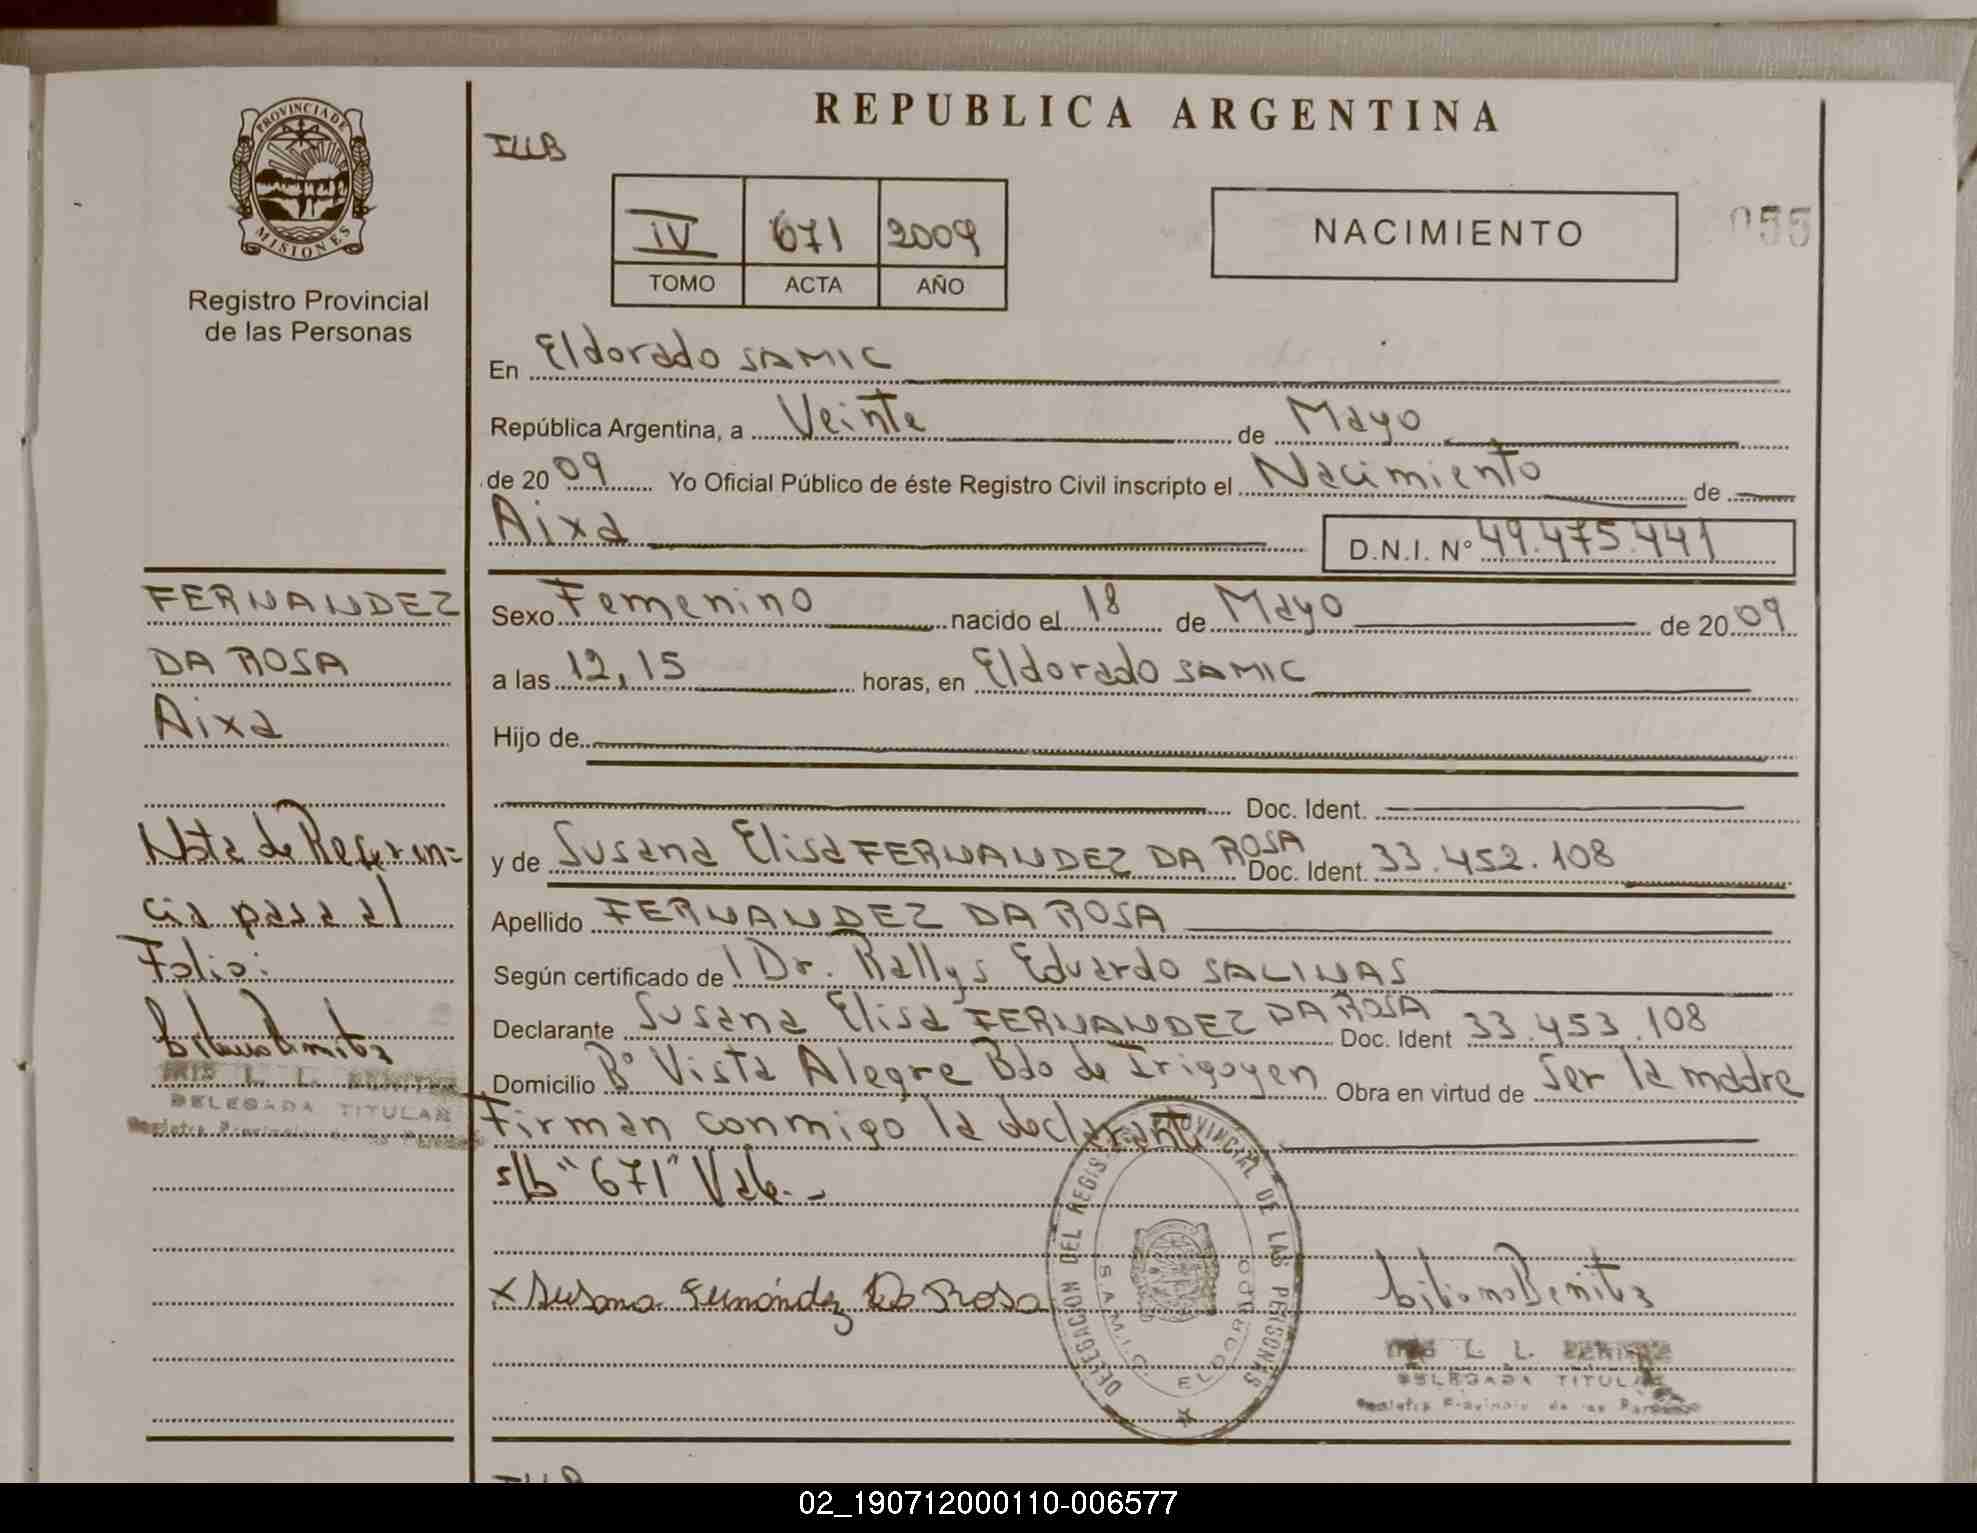 REPUBLICA ARGENTINA
PROVINCIA DE
MISIONES
Registro Provincial
de las Personas
ILLB
IV 671 2009
TOMO ACTA AÑO
NACIMIENTO
055
En Eldorado SAMIC
República Argentina, a Veinte de Mayo
de 2009 Yo Oficial Público de éste Registro Civil inscripto el Nacimiento de
Aixa D.N.I. Nº 49.475.441
FERNANDEZ
DA ROSA
Aixa
Nota de Referen=
cia pasa al
Folio:
L. L. BENITEZ
DELEGADA TITULAR
Registro Provincial de las Personas
Sexo Femenino nacido el 18 de Mayo de 2009
a las 12,15 horas, en Eldorado SAMIC
Hijo de
Doc. Ident.
y de Susana Elisa FERNANDEZ DA ROSA Doc. Ident. 33.452.108
Apellido FERNANDEZ DA ROSA
Según certificado de l Dr. Rallys Eduardo SALINAS
Declarante Susana Elisa FERNANDEZ DA ROSA Doc. Ident 33.453.108
Domicilio Bº Vista Alegre Bdo de Irigoyen Obra en virtud de Ser la madre
Firman conmigo la declarante
s/b "671" Vale.-
x Susana Fernández Da Rosa
DELEGACION DEL REGISTRO PROVINCIAL DE LAS PERSONAS
S.A.M.I.C. ELDORADO
L. L. BENITEZ
DELEGADA TITULAR
Registro Provincial de las Personas
02_190712000110-006577